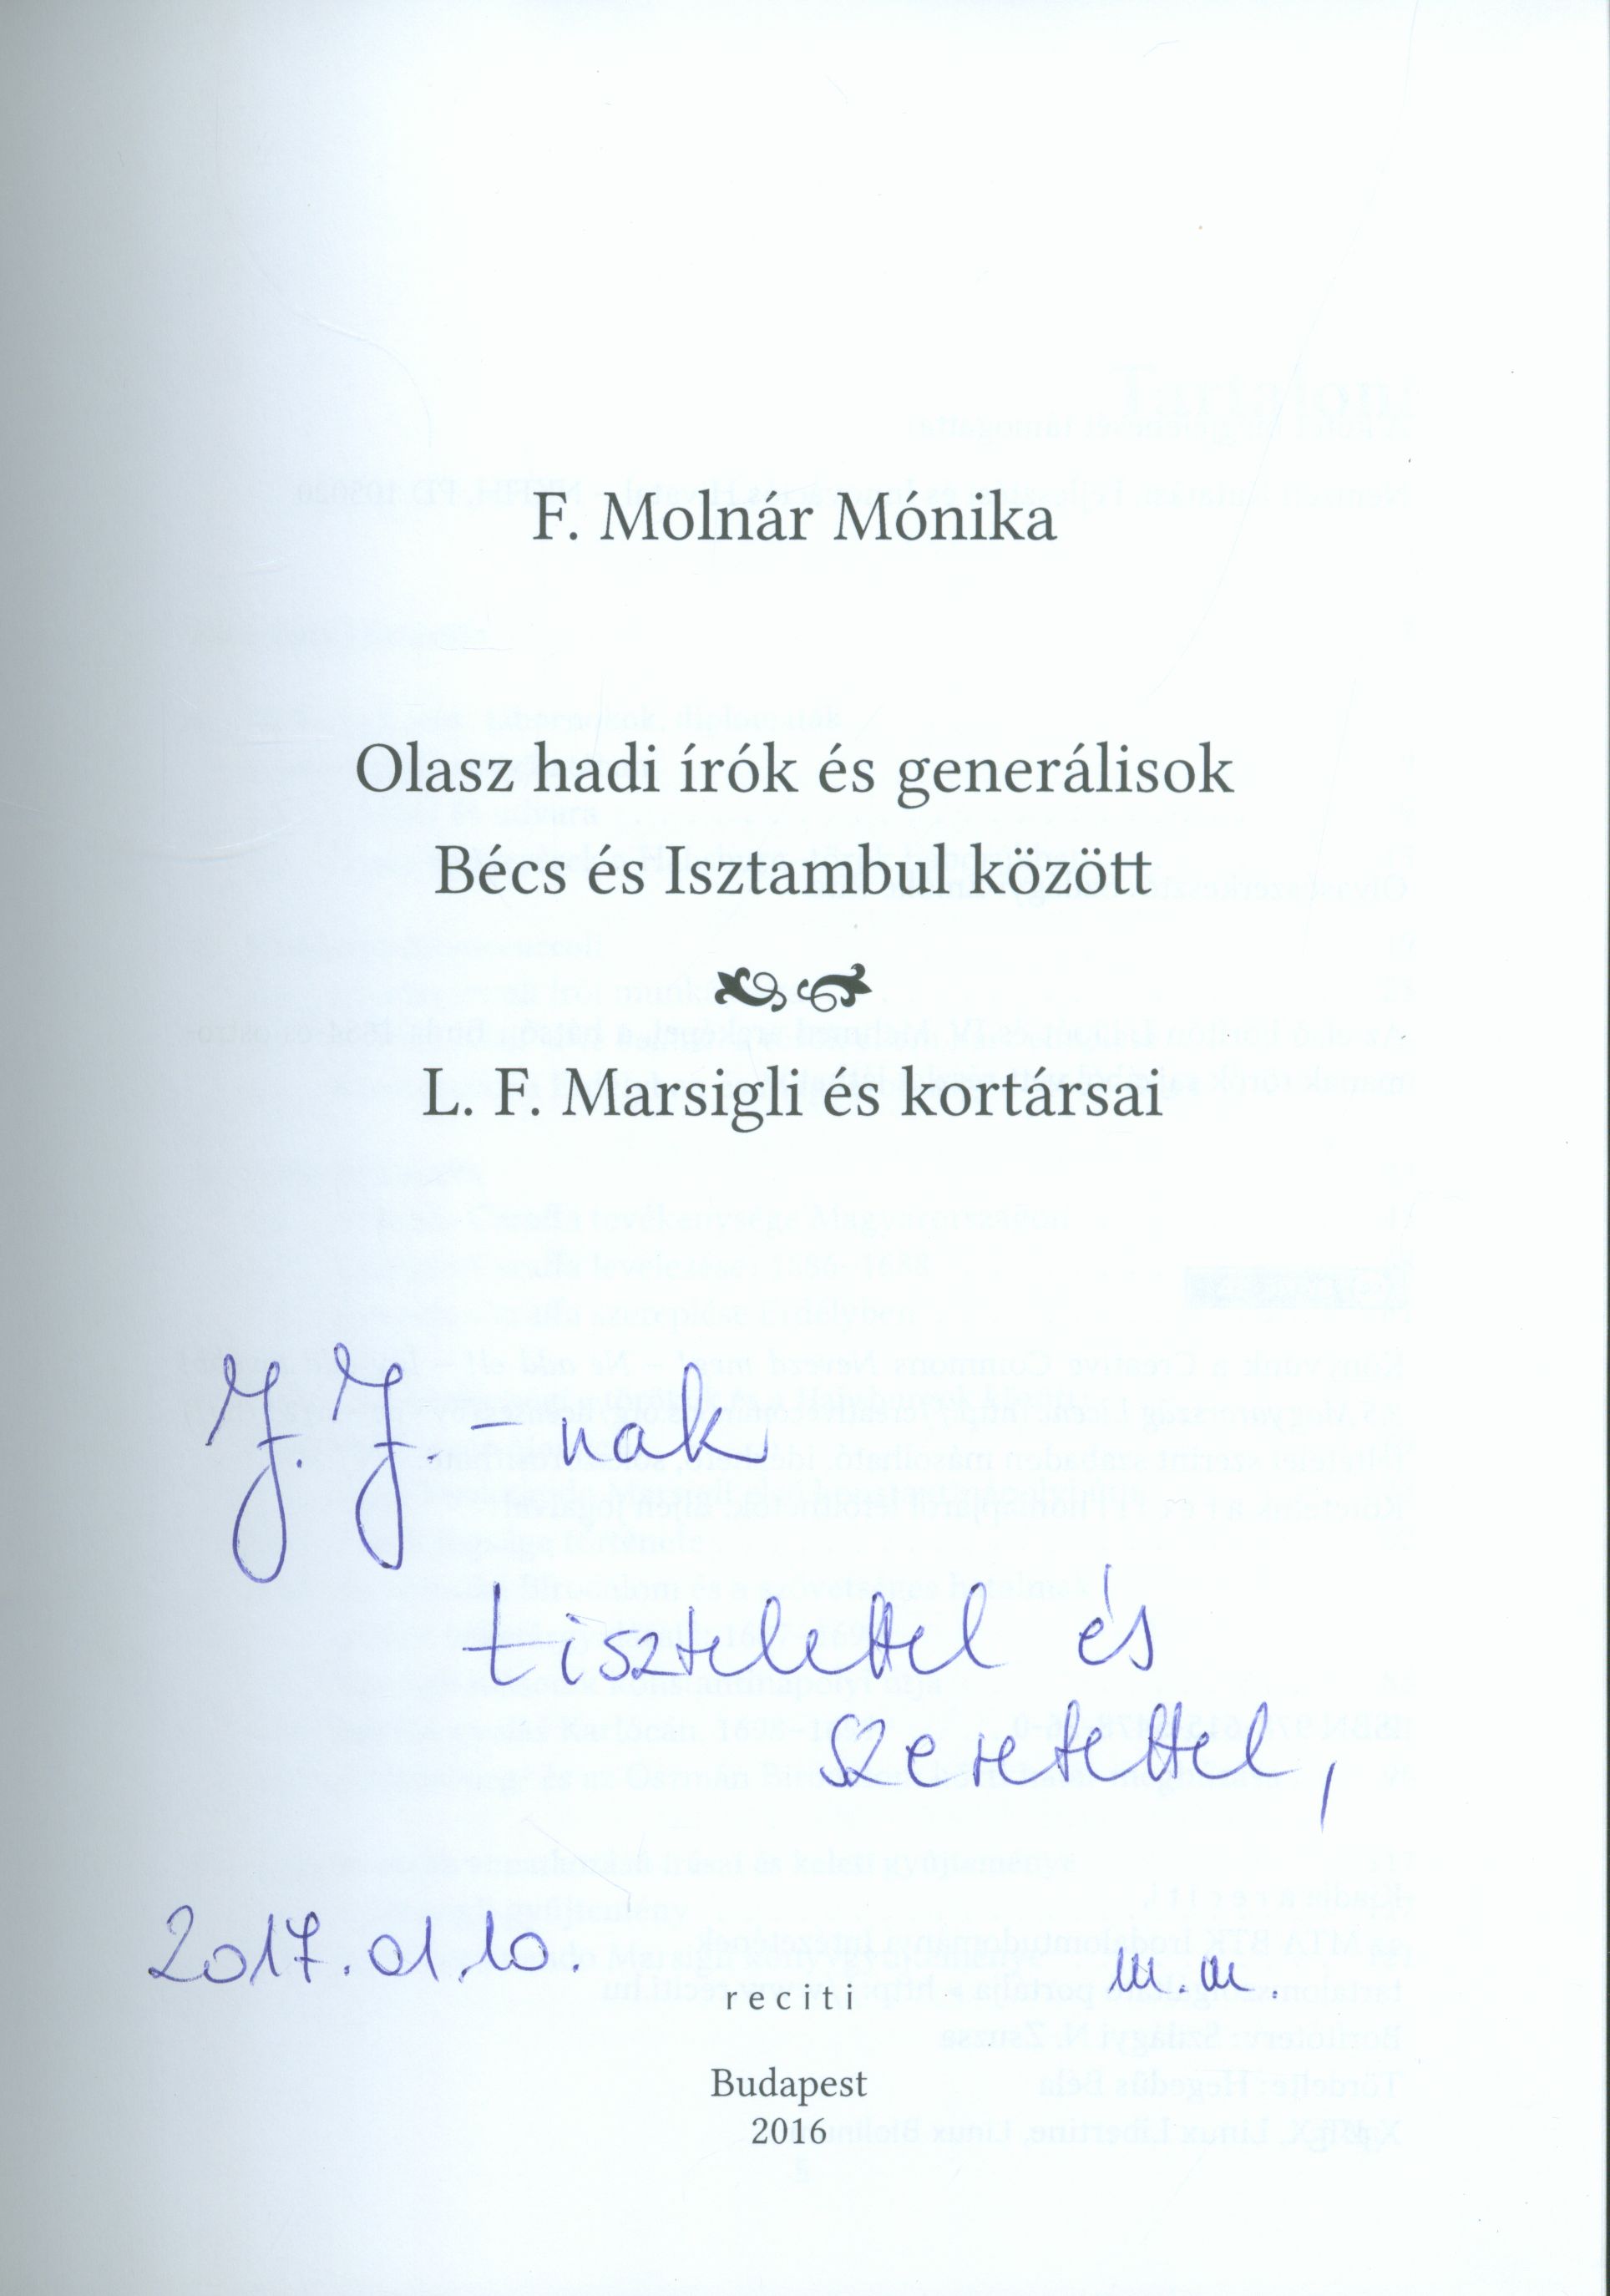 F. Molnár Mónika
Olasz hadi írók és generálisok
Bécs és Isztambul között
L. F. Marsigli és kortársai
J. J. -nak
tisztelettel és
szeretettel,
2017. 01. 10.
m. m.
reciti
Budapest
2016